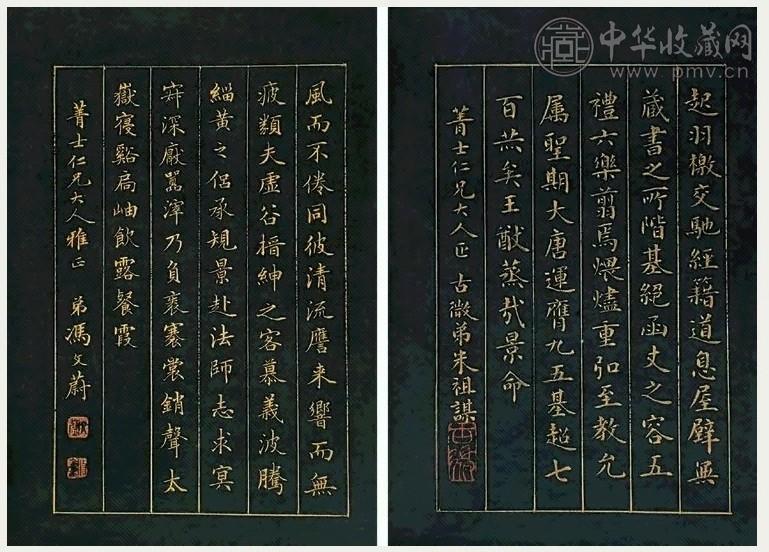 中华收藏网
www.pmv.cn
起羽檄交馳經籍道息屋壁無
藏書之所階基絕函丈之容五
禮六樂翦焉煨燼重弘至教允
属聖期大唐運膺九五基超七
百赫矣王猷蒸哉景命
菁士仁兄大人正 古微弟朱祖謀
風而不倦同彼清流譍来響而無
疲類夫虛谷搢紳之客慕義波騰
緇黃之侶承規景赴法師志求冥
寂深厭囂滓乃負袠褰裳銷聲太
嶽寑谿扃岫飲露餐霞
菁士仁兄大人雅正 弟馮文蔚